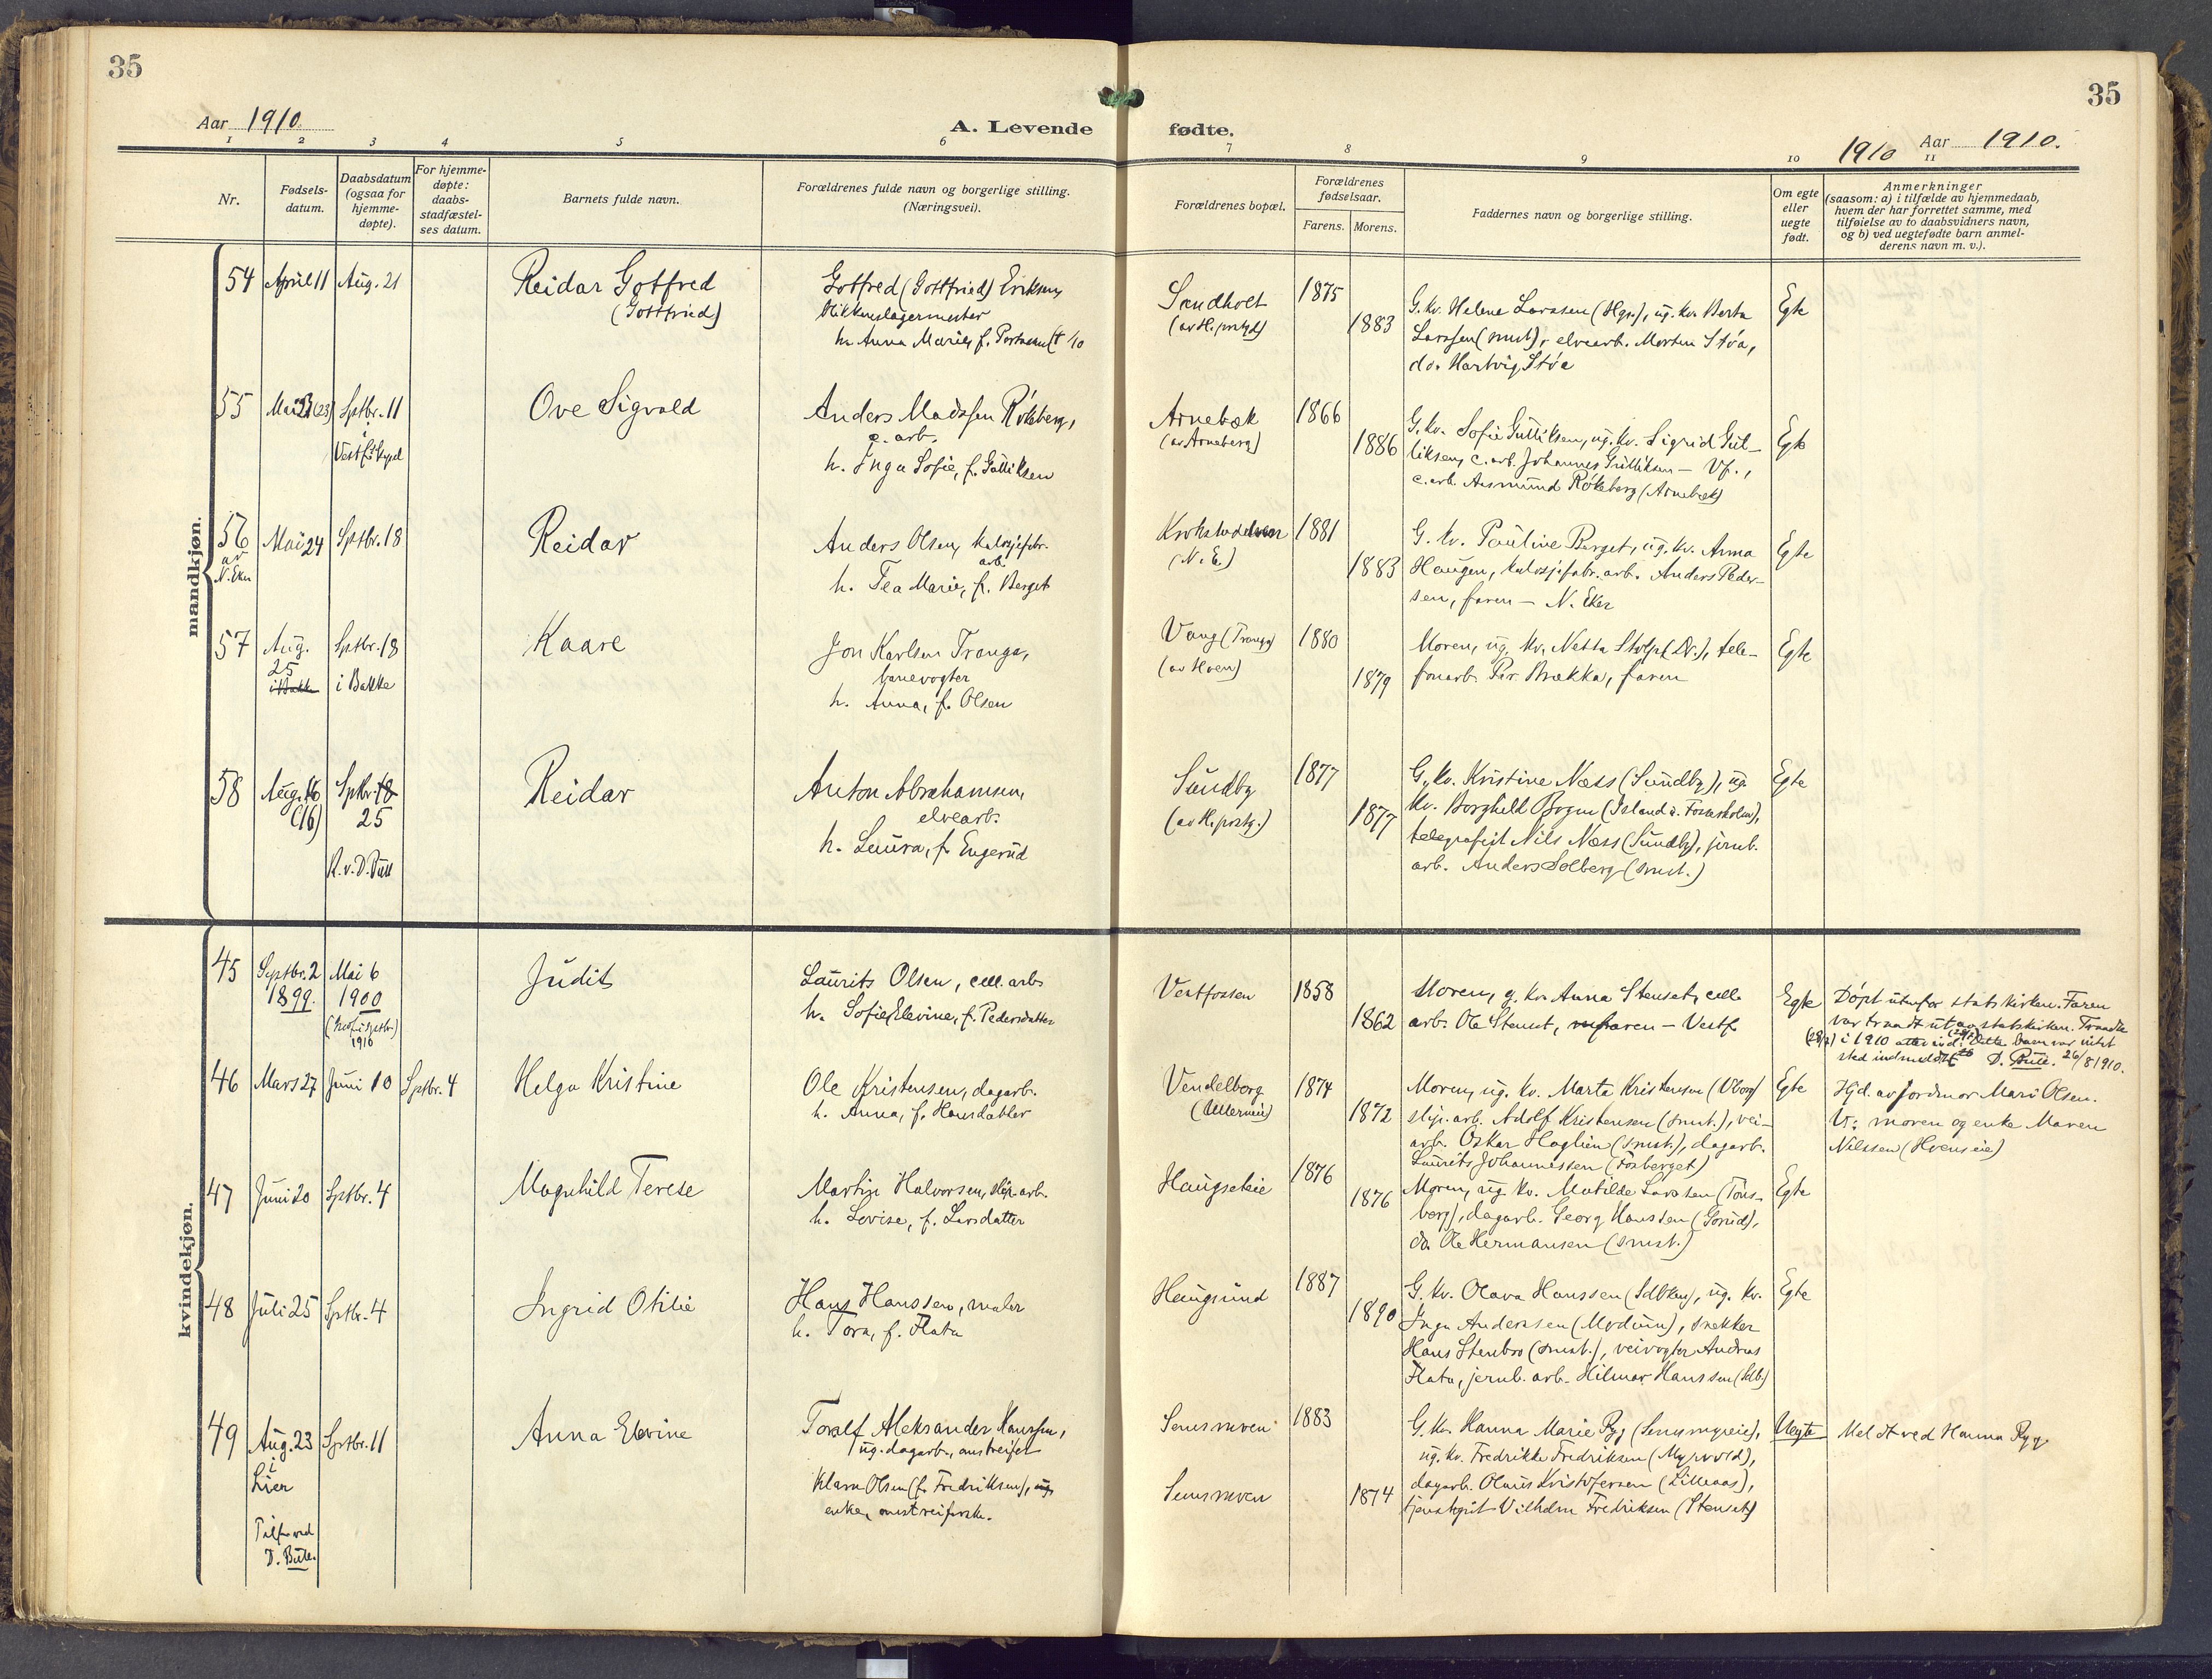 35
35
Aar 1910.
A. Levende fødte.
1910 Aar 1910.
1 2 3 4 5 6 7 8 9 10 11
Nr.
Fødsels-
datum.
Daabsdatum
(ogsaa for
hjemme-
døpte).
For hjemme-
døpte:
daabs-
stadfæstel-
ses datum.
Barnets fulde navn.
Forældrenes fulde navn og borgerlige stilling.
(Næringsvei).
Forældrenes bopæl.
Forældrenes
fødselsaar.
Farens. Morens.
Faddernes navn og borgerlige stilling.
Om egte
eller
uegte
født.
Anmerkninger
(saasom: a) i tilfælde av hjemmedaab,
hvem der har forrettet samme, med
tilføielse av to daabsvidners navn,
og b) ved uegtefødte barn anmel-
derens navn m. v.).
mandkjøn.
54 April 11 Aug. 21
Reidar Gotfred
(Gottfried)
Gotfred (Gottfried) Eriksen,
blikkenslagermester
h. Anna Marie, f.
Sandholt
1875
1883
G. kv. Helene Larssen (Hgs.), ug. kv. Berta
Larssen (smst), elvearb. Morten Støa,
do. Hartvig Støa
Egte
55 Mai (23) Sptbr. 11
i
Ove Sigvald
Anders Madssen Røkeberg,
c. arb.
h. Inga Sofie, f. Gulliksen
Arnebæk
(av Arneberg)
1866
1886
G. kv. Sofie Gulliksen, ug. kv. Sigrid Gul-
liksen, c. arb. Johannes Gulliksen – Vf.,
c. arb. Aasmund Røkeberg (Arnebæk)
Egte
56
av
N. Eker
Mai 24 Sptbr. 18
Reidar
Anders Olsen,
arb.
h. Tea Marie, f. Berget
Krokstadelven
(N. E.)
1881
1883
G. kv. Pauline Berget, ug. kv. Anna
Haugen, arb. Anders Peder-
sen, faren – N. Eker
Egte
57 Aug. 25 Sptbr. 18
i Bakke i Bakke
Kaare
Jon Karlsen Tranga,
banevogter
h. Anna, f. Olsen
Vang (Tranga)
(av Hoen)
1880
1879
Moren, ug. kv. Netta (Dr.), tele-
fonarb. Per Brækka, faren
Egte
58 Aug. 16 Sptbr. 18
(16) 25
R. v. D. Bull
Reidar
Anton Abrahamsen,
elvearb.
h. Laura, f. Engerud
Sundby
1877
1877
G. kv. Kristine Næss (Sundby), ug.
kv. Borghild Bogen (Island v. Fossesholm),
telegrafist Nils Næss (Sundby), jernb.
arb. Anders Solberg (smst.)
Egte
kvindekjøn.
45 Septbr. 2 Mai 6
1899. 1900
1910
Judit
Laurits Olsen, cell. arb.
h. Sofie Elevine, f. Pedersdatter
Vestfossen
1858
1862
Moren, g. kv. Anna Stenset, cell.
arb. Ole Stenset, faren – Vestf.
Egte
Døpt utenfor statskirken. Faren
var traadt ut av statskirken. Traadte
i 1910 atter ind. Dette barn var intet
sted indmeldt. D. Bull. 26/8 1910.
46 Mars 27 Juni 10 Sptbr. 4
Helga Kristine
Ole Kristensen, dagarb.
h. Anna, f. Hansdatter
Vendelborg
1874
1872
Moren, ug. kv. Marta Kristensen (Vborg)
slip. arb. Adolf Kristensen (smst.), vei-
arb. Oskar Haglien (smst.), dagarb.
Laurits Johannessen (Fosberget)
Egte
Hjd. av jordmor Mari Olsen.
V.: moren og enke Maren
Nilssen (Hoenseie)
47 Juni 20 Sptbr. 4
Magnhild Terese
Martin Halvorsen, slip. arb.
h. Lovise, f. Larsdatter
Haugseteie
1876
1876
Moren, ug. kv. Matilde Larssen (Tøns-
berg), dagarb. Georg Hanssen (Gorud),
do. Ole Hermansen (smst.)
Egte
48 Juli 25 Sptbr. 4
Ingrid Otilie
Hans Hanssen, maler
h. Tora, f. Flata
Haugsund
1887
1890
G. kv. Olava Hanssen (Sdbken), ug. kv.
Inga Anderssen (Modum), snekker
Hans Stenbro (smst.), veivogter Andreas
Flata, jernb. arb. Hilmar Hanssen (Sdb.)
Egte
49 Aug. 23 Sptbr. 11
i
Lier
D. Bull.
Anna Elevine
Toralf Aleksander Hanssen,
ug. dagarb., omstreifer
Klara Olsen (f. Fredriksen), ug.
enke, omstreiferske.
Semsmoen
Semsmoen
1883
1874
G. kv. Hanna Marie Ryg (Semsmyreie),
ug. kv. Fredrikke Fredriksen (Myrvold),
dagarb. Olaus Kristofersen (Lilleaas),
tjenstegut Vilhelm Fredriksen (Stenset)
Uegte
Meldt ved Hanna Ryg.